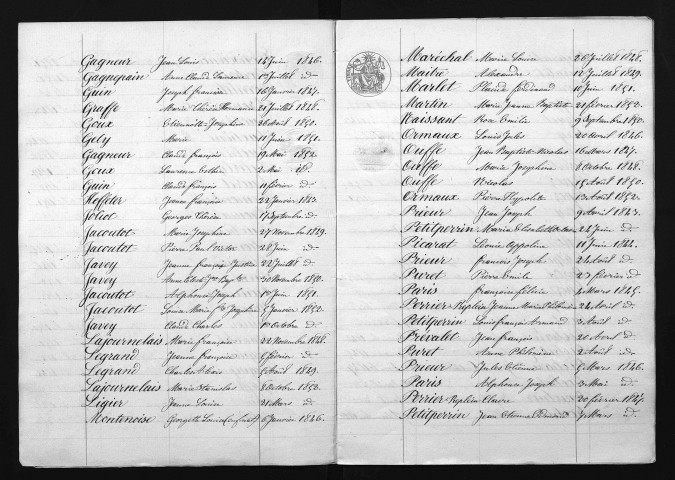 Gagneur Jean Louis 14 Juin 1846.
Gagnepain Anne Claude 1er Juillet id
Guin Joseph francois 16 Janvier 1847.
Graffe Marie Thérèse 21 Juillet 1848.
Goux Etiennette Josephine 26 Août 1850.
Gely Marie 11 Juin 1851.
Gagneur Claude françois 19 Mai 1852.
Goux Laurence 2 Mai id.
Guin Claude françois 11 février id
Hoffeler Jeanne françoise 22 Janvier 1843.
Joliot Georges 17 Septembre id
Jacoutot Marie Josephine 27 Novembre 1849.
Jacoutot Pierre Paul Victor 28 Juin id.
Javey Jeanne françoise Justine 22 Juillet id
Javey Anne 20 Novembre 1850.
Jacoutot Alphonse Joseph 1er Juin 1851.
Jacoutot Louise Marie Josephine 5 Janvier 1852.
Javey Claude Charles 1er Octobre id
Lajournelais Marie françoise 22 Novembre 1848.
Legrand Jeanne françoise 6 février id
Legrand Charles Alexis 5 Août 1849.
Lajournelais Marie Stanislas 8 Octobre 1850.
Ligier Jeanne Louise 31 Mars id
Montenoise Georgette Louise 6 Janvier 1846.
Maréchal Marie Louise 26 Juillet 1848.
Maitre Alexandre 12 Juillet 1849.
Marlet Placide ferdinand 10 Juin 1851.
Martin Marie Jeanne Baptiste 21 février 1852.
Naissant Rose Emilie 9 Septembre 1850.
Ormaux Louis Jules 20 Avril 1846.
Ouffe Jean Baptiste Nicolas 16 Mars 1847.
Ouffe Marie Josephine 8 Octobre 1848.
Ouffe Nicolas 15 Août 1850.
Ormaux Pierre Hyppolite 13 Août 1852.
Prieur Jean Joseph 9 Avril 1843.
Petitperrin Marie Charlotte 24 Juin id
Picarat Léonie Appoline 11 Juin 1844.
Prieur francois Joseph 24 Août id
Puret Pierre Emile 25 février id
Paris 4 Mars 1845.
Perrier Replein Jeanne Marie 24 Avril id
Petitperrin Louis françois Armand 3 Avril id
Prevalet Jean françois 20 Avril id
Puret Anne Philomène 2 Août id
Prieur Jules Etienne 5 Mars 1846.
Paris Alphonse Joseph 3 Mai id
Perrier Replein Claire 20 février 1847.
Petitperrin Jean Etienne 7 Mars id